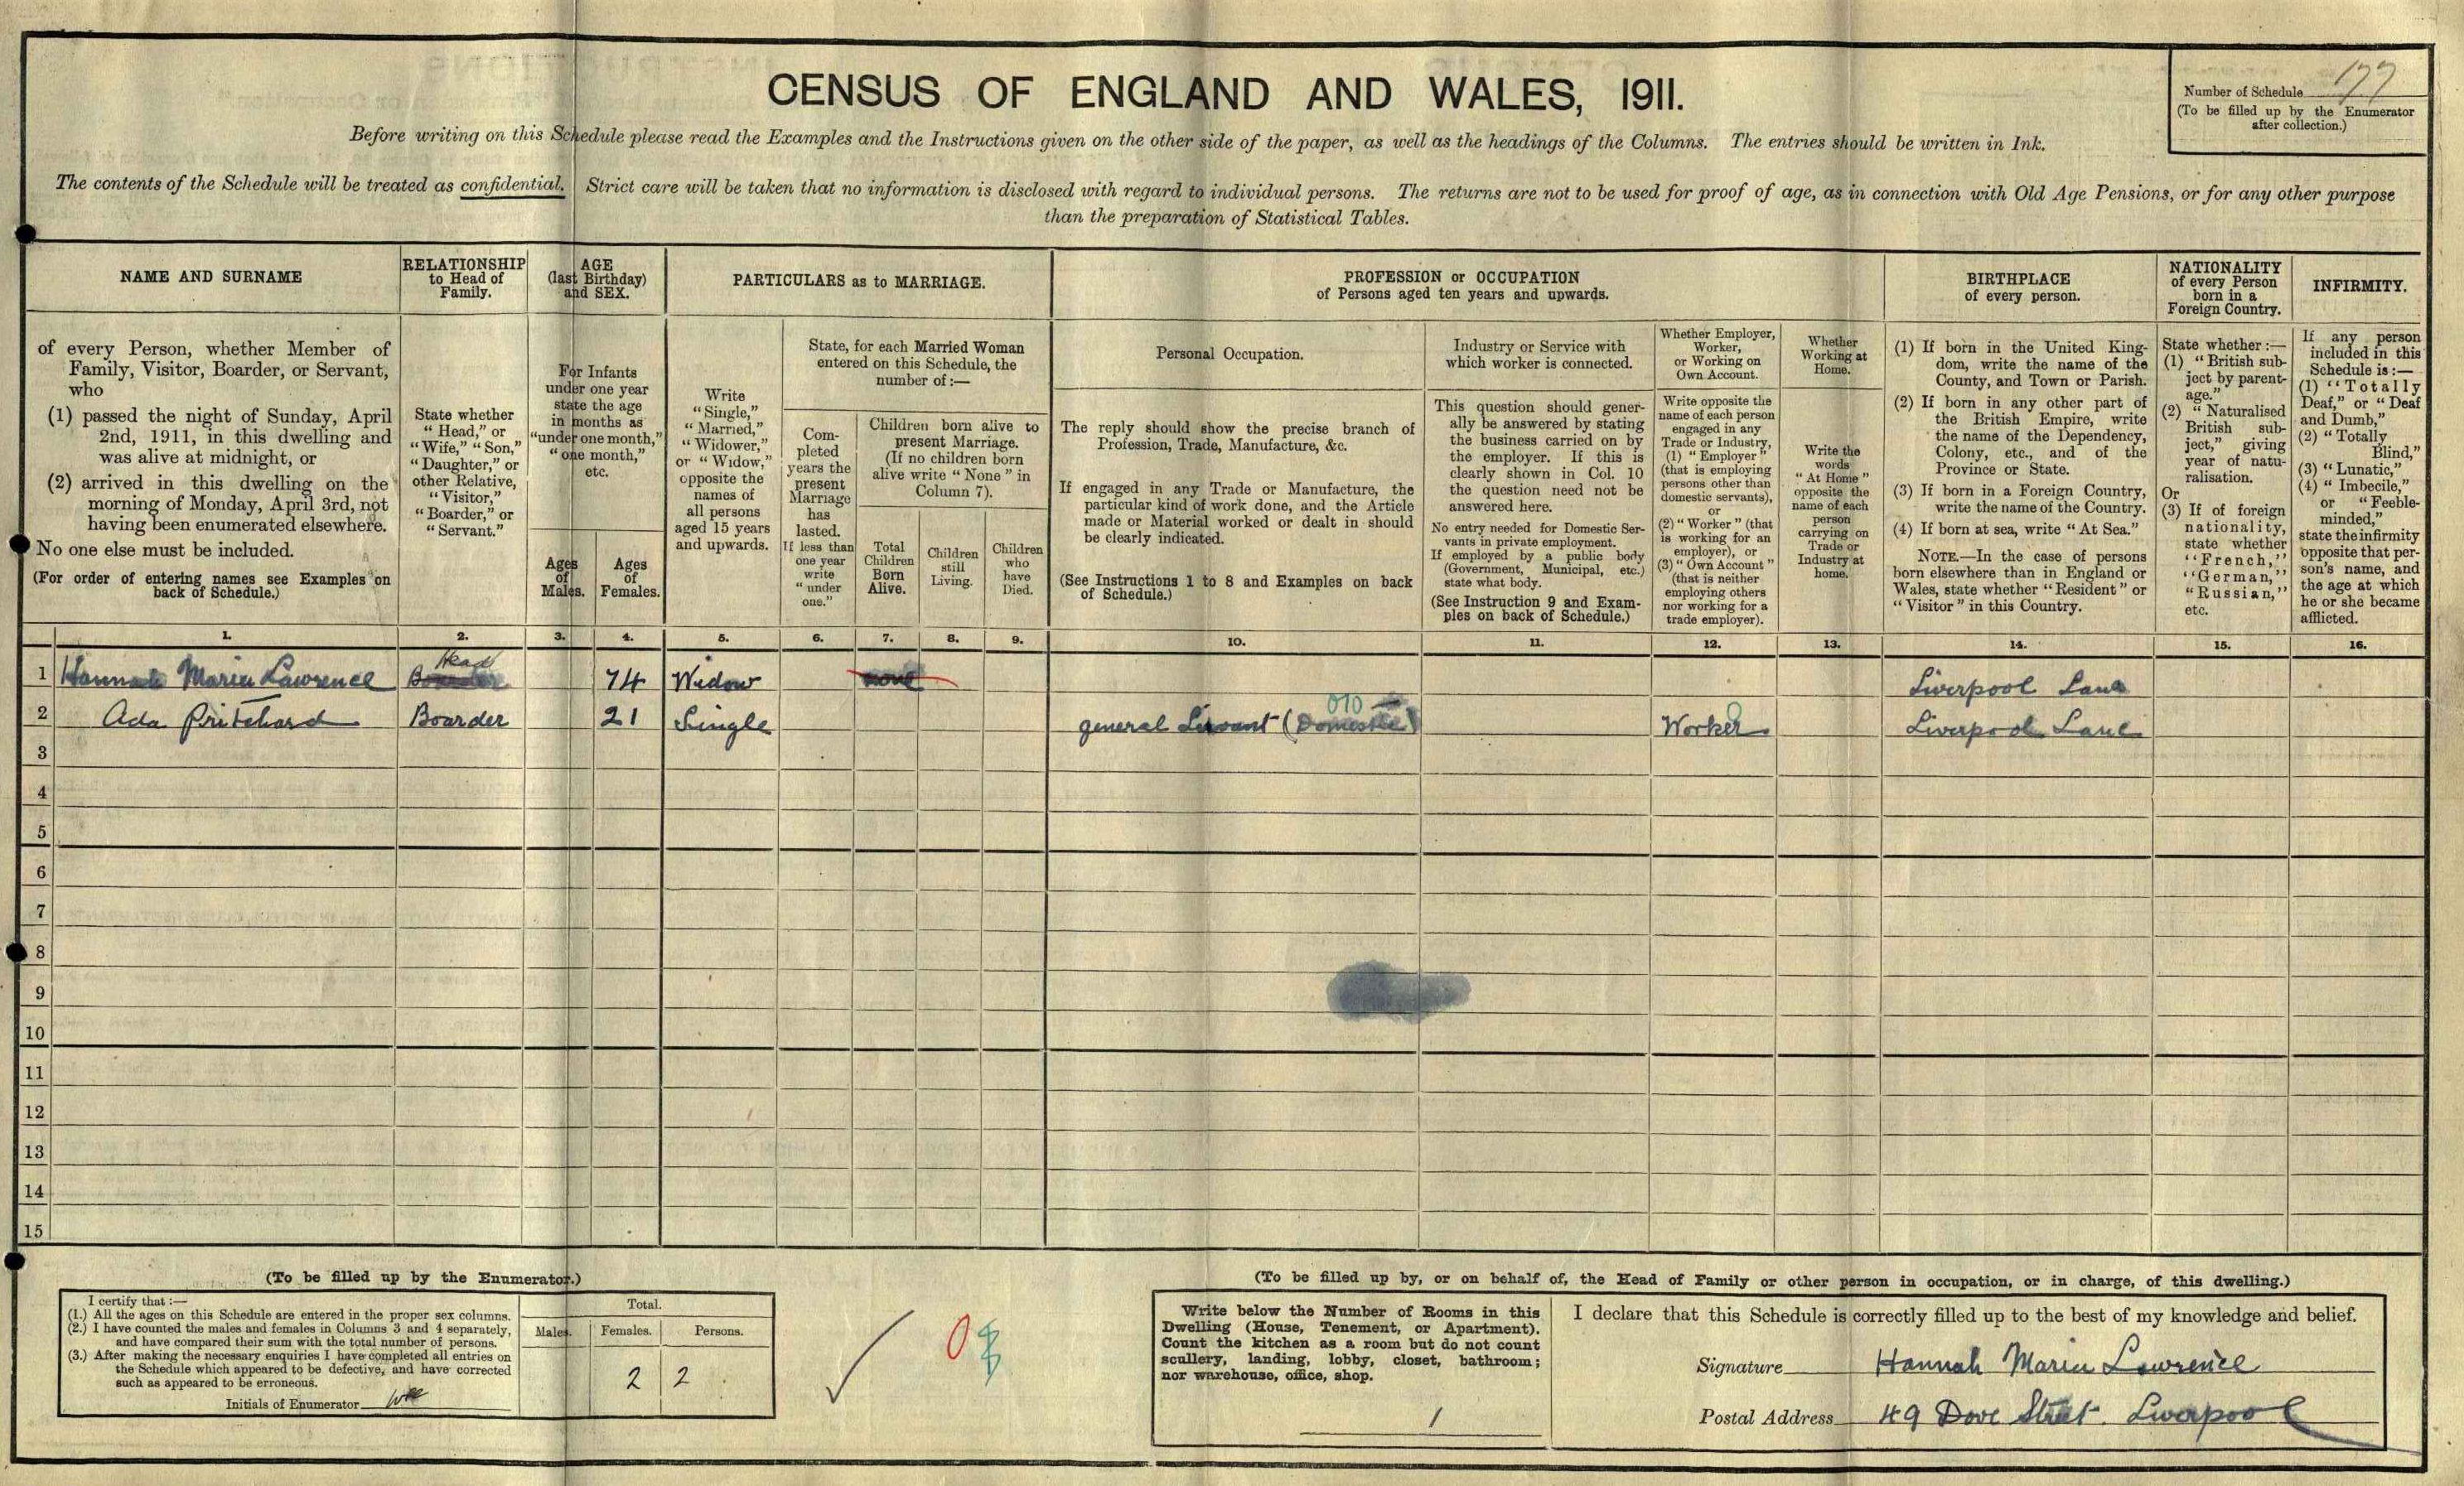 CENSUS OF ENGLAND AND WALES, 1911.
Number of Schedule 177
(To be filled up by the Enumerator
after collection.)
Before writing on this Schedule please read the Examples and the Instructions given on the other side of the paper, as well as the headings of the Columns. The entries should be written in Ink.
The contents of the Schedule will be treated as confidential. Strict care will be taken that no information is disclosed with regard to individual persons. The returns are not to be used for proof of age, as in connection with Old Age Pensions, or for any other purpose
than the preparation of Statistical Tables.
NAME AND SURNAME
of every Person, whether Member of
Family, Visitor, Boarder, or Servant,
who
(1) passed the night of Sunday, April
2nd, 1911, in this dwelling and
was alive at midnight, or
(2) arrived in this dwelling on the
morning of Monday, April 3rd, not
having been enumerated elsewhere.
No one else must be included.
(For order of entering names see Examples on
back of Schedule.)
RELATIONSHIP
to Head of
Family.
State whether
"Head," or
"Wife," "Son,"
"Daughter," or
other Relative,
"Visitor,"
"Boarder," or
"Servant."
AGE
(last Birthday)
and SEX.
For Infants
under one year
state the age
in months as
"under one month,"
"one month,"
etc.
Ages
of
Males.
Ages
of
Females.
PARTICULARS as to MARRIAGE.
Write
"Single,"
"Married,"
"Widower,"
or "Widow,"
opposite the
names of
all persons
aged 15 years
and upwards.
State, for each Married Woman
entered on this Schedule, the
number of:—
Com-
pleted
years the
present
Marriage
has
lasted.
If less than
one year
write
"under
one."
Children born alive to
present Marriage.
(If no children born
alive write "None" in
Column 7).
Total
Children
Born
Alive.
Children
still
Living.
Children
who
have
Died.
PROFESSION or OCCUPATION
of Persons aged ten years and upwards.
Personal Occupation.
The reply should show the precise branch of
Profession, Trade, Manufacture, &c.
If engaged in any Trade or Manufacture, the
particular kind of work done, and the Article
made or Material worked or dealt in should
be clearly indicated.
(See Instructions 1 to 8 and Examples on back
of Schedule.)
Industry or Service with
which worker is connected.
This question should gener-
ally be answered by stating
the business carried on by
the employer. If this is
clearly shown in Col. 10
the question need not be
answered here.
No entry needed for Domestic Ser-
vants in private employment.
If employed by a public body
(Government, Municipal, etc.)
state what body.
(See Instruction 9 and Exam-
ples on back of Schedule.)
Whether Employer,
Worker,
or Working on
Own Account.
Write opposite the
name of each person
engaged in any
Trade or Industry,
(1) "Employer"
(that is employing
persons other than
domestic servants),
or
(2) "Worker" (that
is working for an
employer), or
(3) "Own Account"
(that is neither
employing others
nor working for a
trade employer).
Whether
Working at
Home.
Write the
words
"At Home"
opposite the
name of each
person
carrying on
Trade or
Industry at
home.
BIRTHPLACE
of every person.
(1) If born in the United King-
dom, write the name of the
County, and Town or Parish.
(2) If born in any other part of
the British Empire, write
the name of the Dependency,
Colony, etc., and of the
Province or State.
(3) If born in a Foreign Country,
write the name of the Country.
(4) If born at sea, write "At Sea."
NOTE.—In the case of persons
born elsewhere than in England or
Wales, state whether "Resident" or
"Visitor" in this Country.
NATIONALITY
of every Person
born in a
Foreign Country.
State whether:—
(1) "British sub-
ject by parent-
age."
(2) "Naturalised
British sub-
ject," giving
year of natu-
ralisation.
Or
(3) If of foreign
nationality,
state whether
"French,"
"German,"
"Russian,"
etc.
INFIRMITY.
If any person
included in this
Schedule is:—
(1) "Totally
Deaf," or "Deaf
and Dumb,"
(2) "Totally
Blind,"
(3) "Lunatic,"
(4) "Imbecile,"
or "Feeble-
minded,"
state the infirmity
opposite that per-
son's name, and
the age at which
he or she became
afflicted.
1. 2. 3. 4. 5. 6. 7. 8. 9. 10. 11. 12. 13. 14. 15. 16.
Head
1 Hannah Maria Lawrence Boarder 74 Widow none Liverpool Lanc
010
2 Ada Pritchard Boarder 21 Single general Servant (Domestic) Worker Liverpool Lanc
3
4
5
6
7
8
9
10
11
12
13
14
15
(To be filled up by the Enumerator.)
I certify that:—
(1.) All the ages on this Schedule are entered in the proper sex columns.
(2.) I have counted the males and females in Columns 3 and 4 separately,
and have compared their sum with the total number of persons.
(3.) After making the necessary enquiries I have completed all entries on
the Schedule which appeared to be defective, and have corrected
such as appeared to be erroneous.
Initials of Enumerator
Total.
Males. Females. Persons.
2 2
(To be filled up by, or on behalf of, the Head of Family or other person in occupation, or in charge, of this dwelling.)
Write below the Number of Rooms in this
Dwelling (House, Tenement, or Apartment).
Count the kitchen as a room but do not count
scullery, landing, lobby, closet, bathroom;
nor warehouse, office, shop.
1
I declare that this Schedule is correctly filled up to the best of my knowledge and belief.
Signature Hannah Maria Lawrence
Postal Address 49 Dove Street. Liverpool